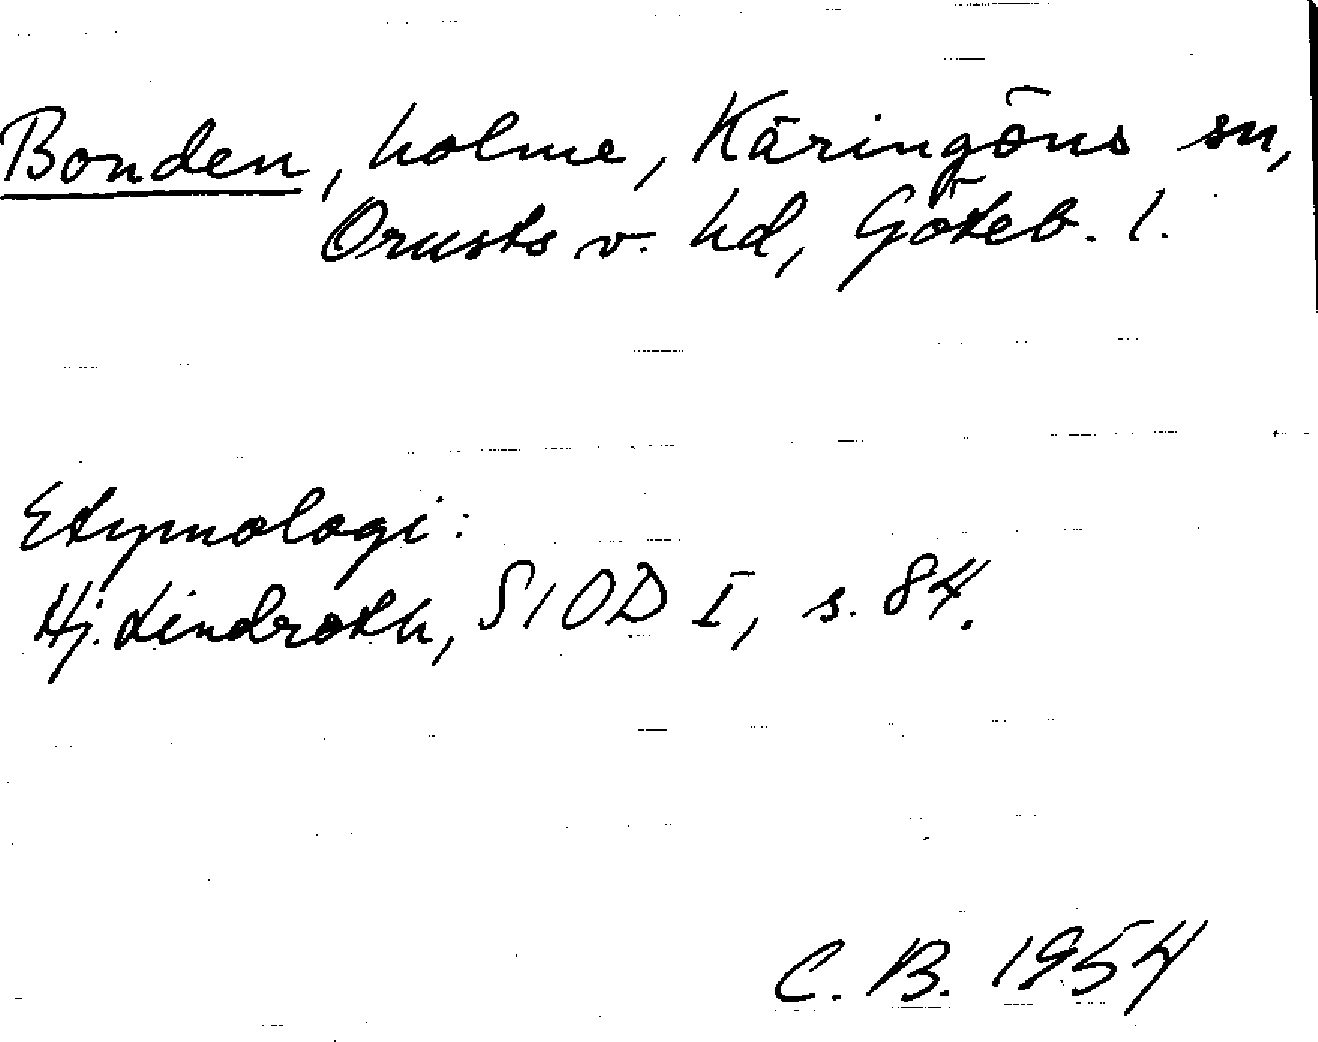 Bonden, holme, Käringöns sn,
Orusts v. hd, Göteb. l.
Etymologi:
Hj. Lindroth, SIOD I, s. 84.
C. B. 1954